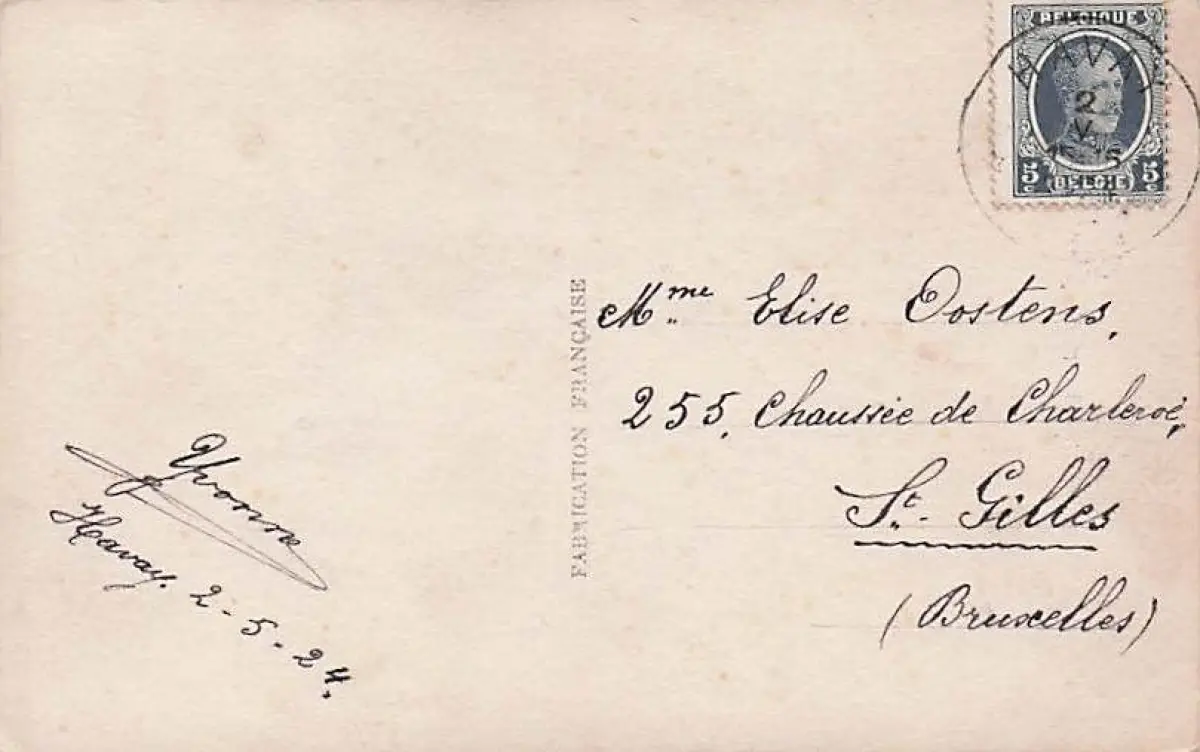 BELGIQUE
HAVAY
2
V
15-16
5c 5c
BELGIË
FABRICATION FRANÇAISE
Mme Elise Oostens,
255, Chaussée de Charleroi,
St. Gilles
(Bruxelles)
Yvonne
Havay. 2-5-24.